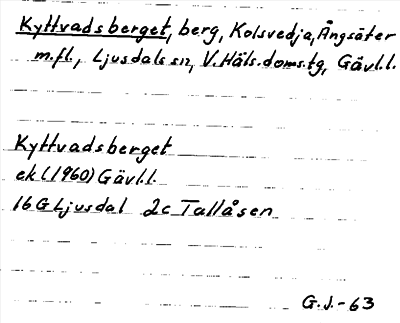 Kyttvadsberget, berg, Kolsvedja, Ångsäter
m.fl., Ljusdals sn, V. Häls. doms.tg, Gävl.l.
Kyttvadsberget
ek (1960) Gävl.l.
16G Ljusdal 2c Tallåsen
G.J.-63